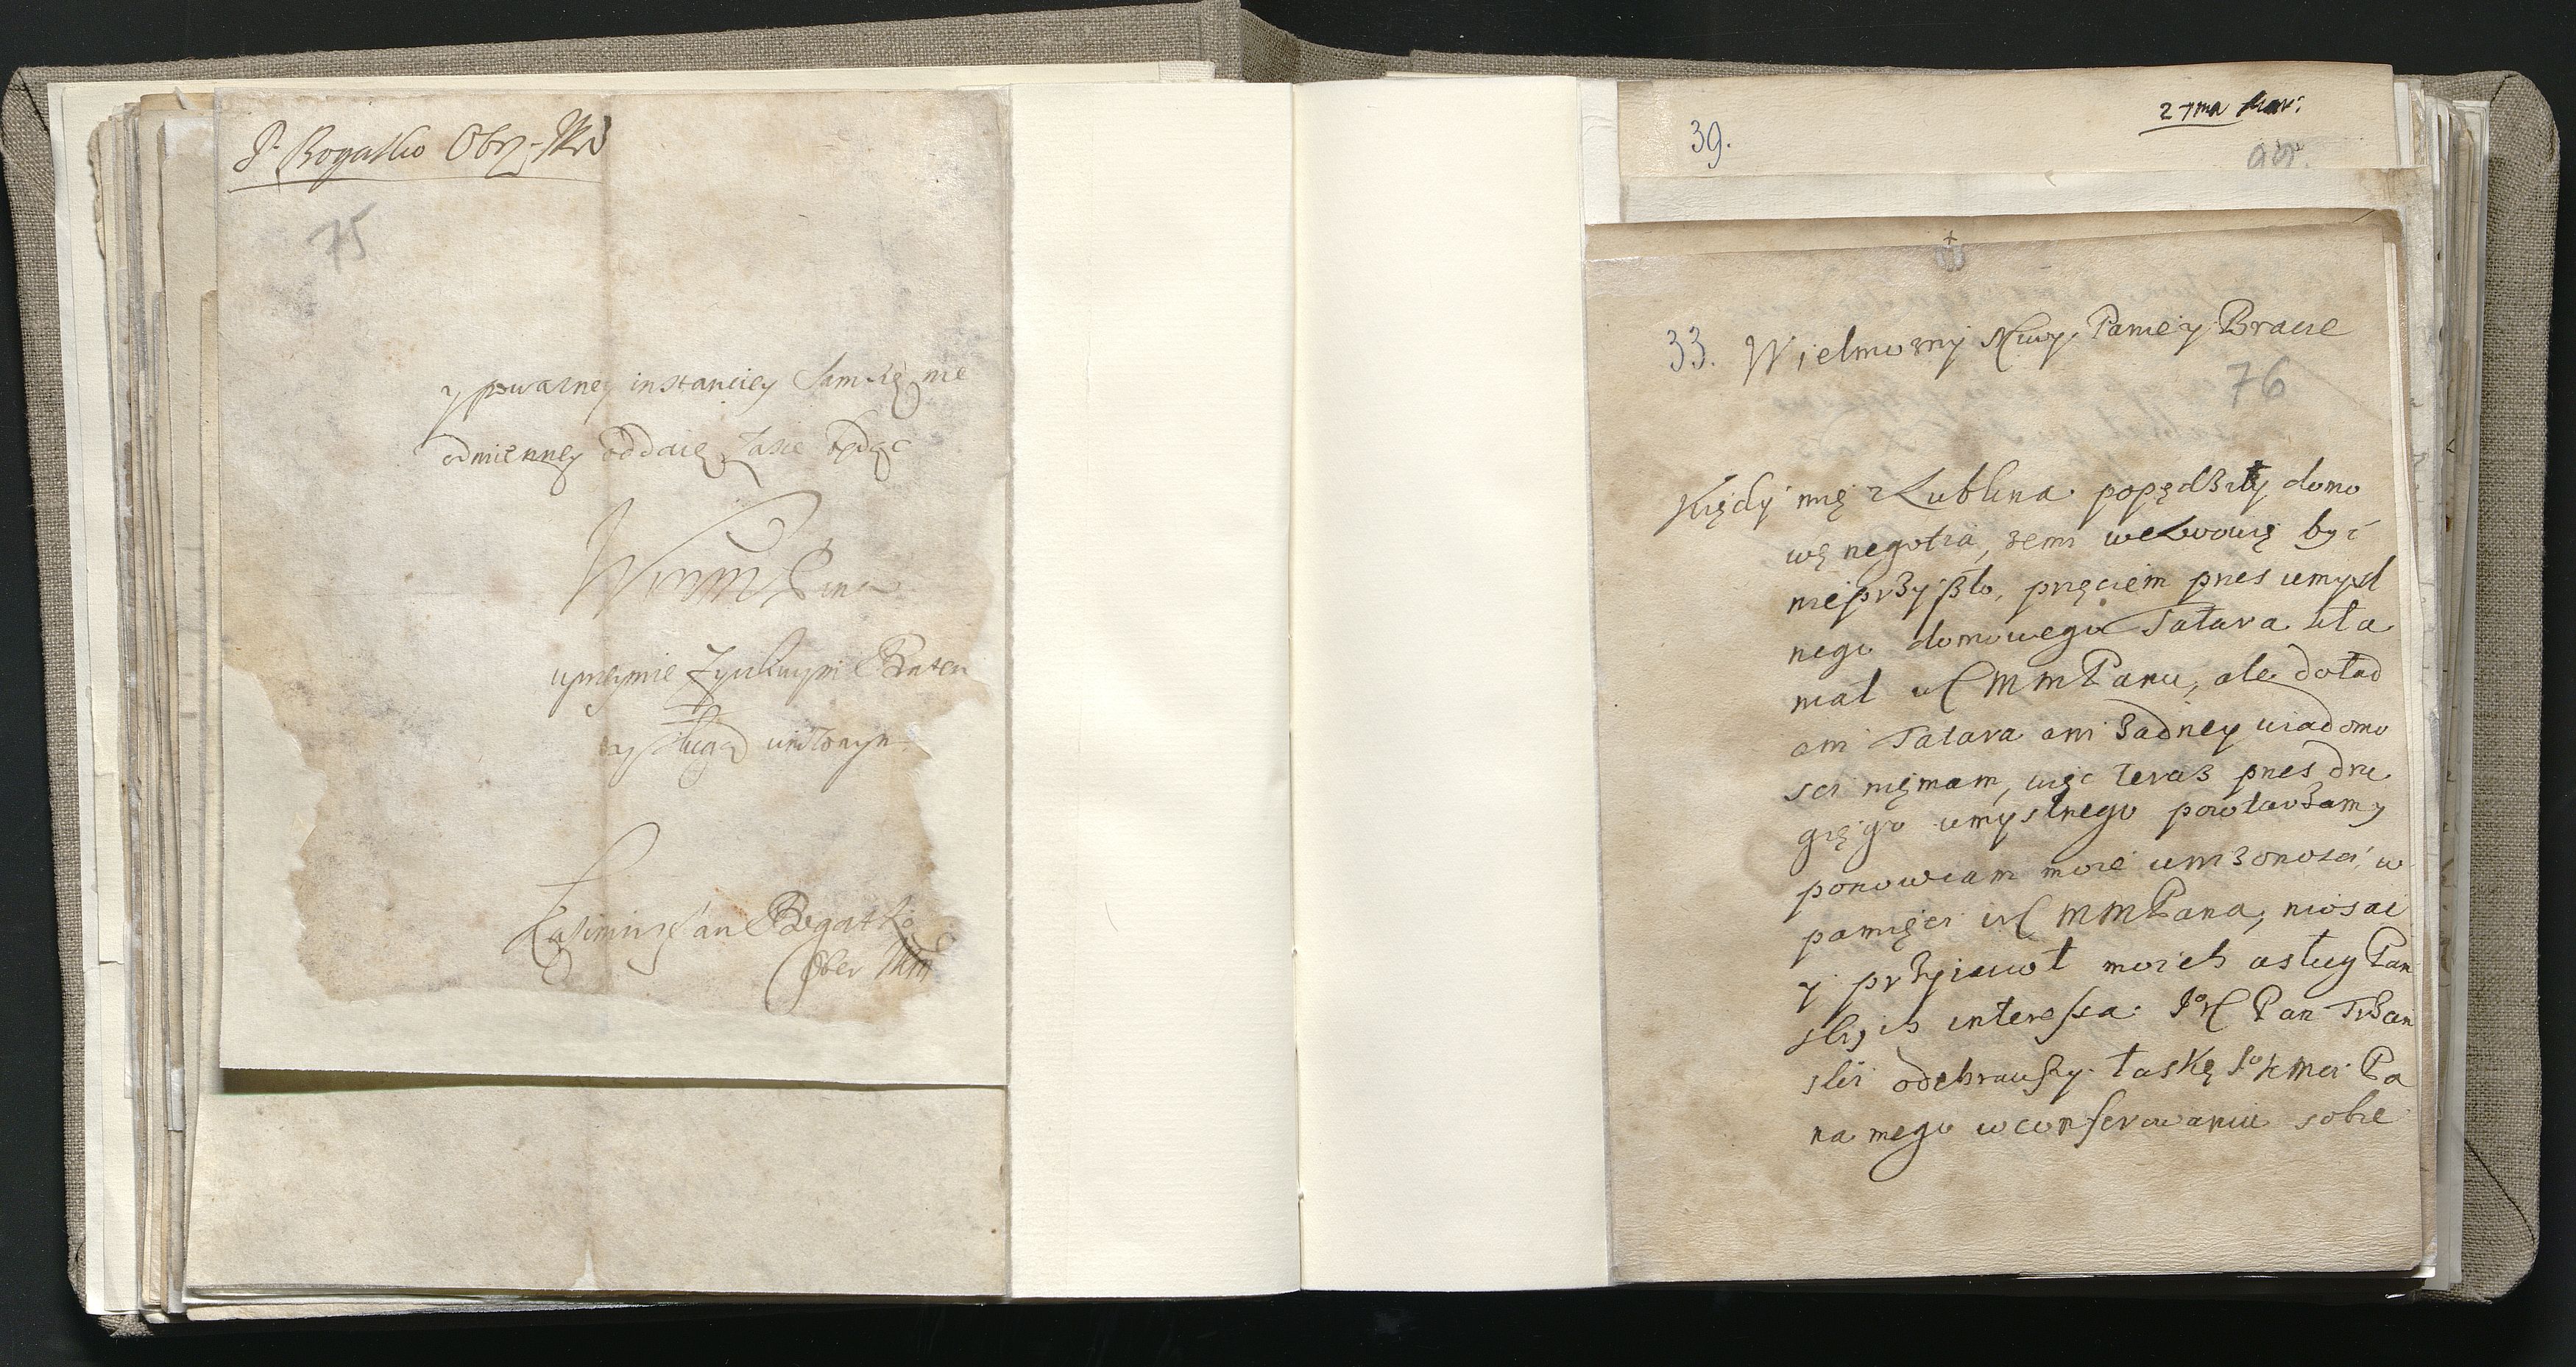 P. Bogatko Obr.
75
y powazney instanciey sam się nie
odmienney oddaię zasie będąc
uprzeymie zyczliwym Bratem
y sługą unizonym
Kazimirz Jan Bogatko
Ober
39.
27ma Mar:
33. Wielmozny Mciwy Panie y Bracie
76
Kiędy mię z Lublina popędziły domo
wę negotia, zemi we Lwowię być
nieprzyszło, pręciem pres umysl
nego domowego Tatara kła
niał MM Panu, ale dotad
ani Tatara ani zadney wiadomo
sci nięmam, więc teraz pres dru
gięgo umyslnego powtarzam y
ponowiam moie unizonosci w
pamięci MM Pana, niosąc
y przyiawot moich usług Pan
skich interessa. Pan Trzan
ski odebrawszy łaskę Pa
na mego w conferowaniu sobie